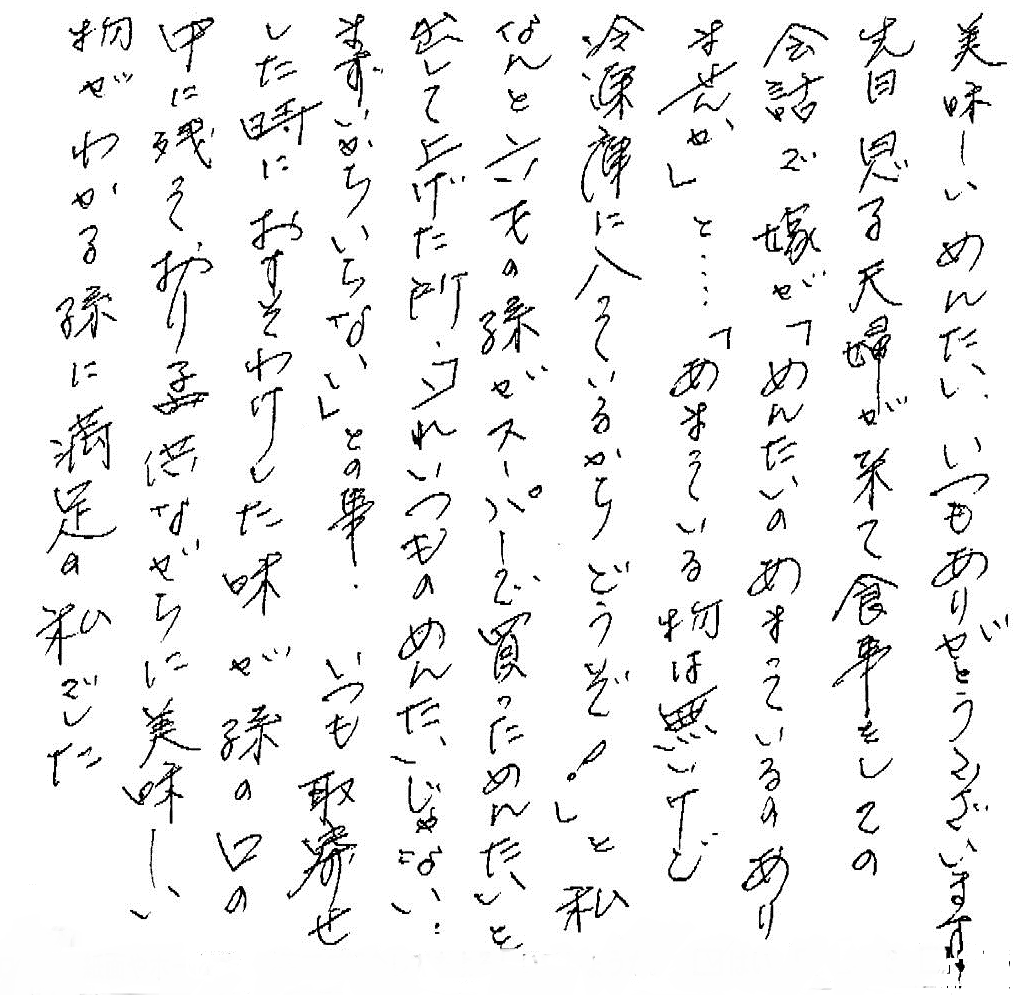 美味しいめんたい、いつもありがとうございます
先日息子夫婦が来て食事をしての
会話で嫁が「めんたいのあまっているのあり
ませんか」と‥‥「あまっている物は無いけど
冷凍庫に入っているからどうぞ!」と私
なんと六才の孫がスーパーで買っためんたいを
出して上げた所、「これいつものめんたいじゃない‥
まずいからいらない」との事. いつも取寄せ
した時におすそわけした味が孫の口の
中に残っており子供ながらに美味しい
物がわかる孫に満足の私でした